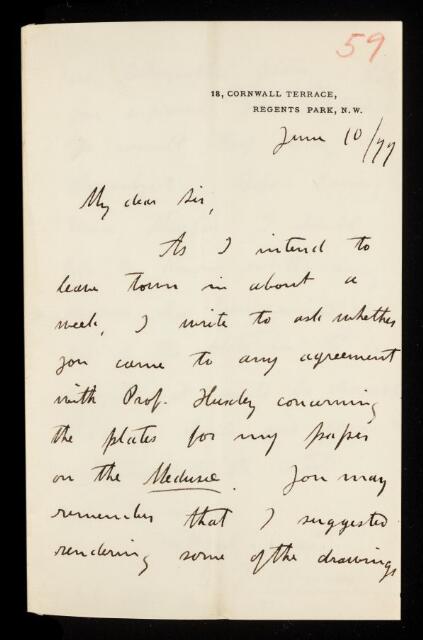 59
18, CORNWALL TERRACE,
REGENTS PARK, N.W.
June 10/79
My dear Sir,
As I intend to
leave town in about a
week, I write to ask whether
you came to any agreement
with Prof. Huxley concerning
the plates for my paper
on the Medusæ. You may
remember that I suggested
rendering some of the drawings